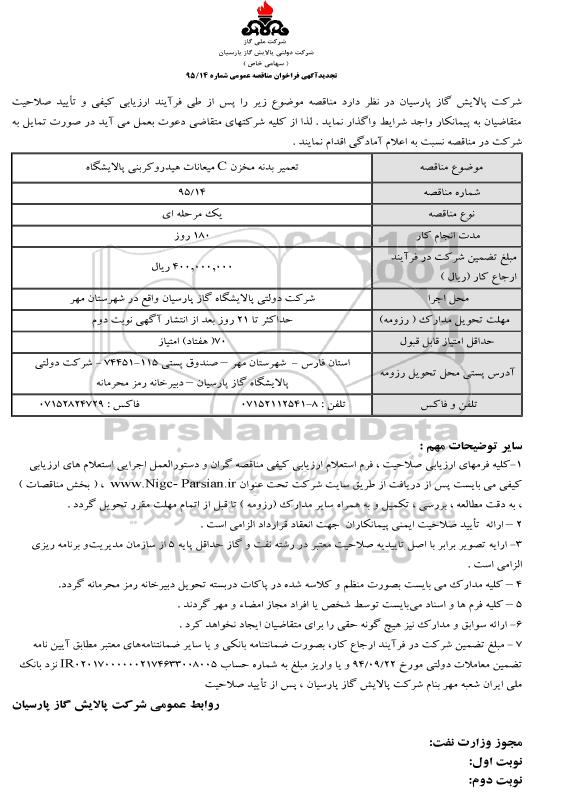 شرکت ملی گاز
شرکت دولتی پالایش گاز پارسیان
( سهامی خاص )
تجدیدآگهی فراخوان مناقصه عمومی شماره ۹۵/۱۴
شرکت پالایش گاز پارسیان در نظر دارد مناقصه موضوع زیر را پس از طی فرآیند ارزیابی کیفی و تأیید صلاحیت
متقاضیان به پیمانکار واجد شرایط واگذار نماید . لذا از کلیه شرکتهای متقاضی دعوت بعمل می آید در صورت تمایل به
شرکت در مناقصه نسبت به اعلام آمادگی اقدام نمایند .
موضوع مناقصه تعمیر بدنه مخزن C میعانات هیدروکربنی پالایشگاه
شماره مناقصه ۹۵/۱۴
نوع مناقصه یک مرحله ای
مدت انجام کار ۱۸۰ روز
مبلغ تضمین شرکت در فرآیند
ارجاع کار (ریال ) ۴۰۰,۰۰۰,۰۰۰ ریال
محل اجرا شرکت دولتی پالایشگاه گاز پارسیان واقع در شهرستان مهر
مهلت تحویل مدارک ( رزومه) حداکثر تا ۲۱ روز بعد از انتشار آگهی نوبت دوم
حداقل امتیاز قابل قبول ۷۰( هفتاد) امتیاز
آدرس پستی محل تحویل رزومه استان فارس – شهرستان مهر – صندوق پستی ۱۱۵-۷۴۴۵۱ - شرکت دولتی
پالایشگاه گاز پارسیان – دبیرخانه رمز محرمانه
تلفن و فاکس تلفن : ۸-۰۷۱۵۲۱۱۲۵۴۱ فاکس : ۰۷۱۵۲۸۲۴۷۲۹
ParsNamadData
سایر توضیحات مهم :
۱-کلیه فرمهای ارزیابی صلاحیت ، فرم استعلام ارزیابی کیفی مناقصه گران و دستورالعمل اجرایی استعلام های ارزیابی
کیفی می بایست پس از دریافت از طریق سایت شرکت تحت عنوان www.Nigc- Parsian.ir ، ( بخش مناقصات )
، به دقت مطالعه ، بررسی ، تکمیل و به همراه سایر مدارک (رزومه ) تا قبل از اتمام مهلت مقرر تحویل گردد .
۲ – ارائه تأیید صلاحیت ایمنی پیمانکاران جهت انعقاد قرارداد الزامی است .
۳- ارایه تصویر برابر با اصل تاییدیه صلاحیت معتبر در رشته نفت و گاز حداقل پایه ۵ از سازمان مدیریت و برنامه ریزی
الزامی است .
۴ – کلیه مدارک می بایست بصورت منظم و کلاسه شده در پاکات دربسته تحویل دبیرخانه رمز محرمانه گردد.
۵ – کلیه فرم ها و اسناد می‌بایست توسط شخص یا افراد مجاز امضاء و مهر گردند .
۶- ارائه سوابق و مدارک نیز هیچ گونه حقی را برای متقاضیان ایجاد نخواهد کرد .
۷ – مبلغ تضمین شرکت در فرآیند ارجاع کار، بصورت ضمانتنامه بانکی و یا سایر ضمانتنامه‌های معتبر مطابق آیین نامه
تضمین معاملات دولتی مورخ ۹۴/۰۹/۲۲ و یا واریز مبلغ به شماره حساب IR۰۲۰۱۷۰۰۰۰۰۰۲۱۷۴۶۳۳۰۰۸۰۰۵ نزد بانک
ملی ایران شعبه مهر بنام شرکت پالایش گاز پارسیان ، پس از تأیید صلاحیت
روابط عمومی شرکت پالایش گاز پارسیان
مجوز وزارت نفت:
نوبت اول:
نوبت دوم: